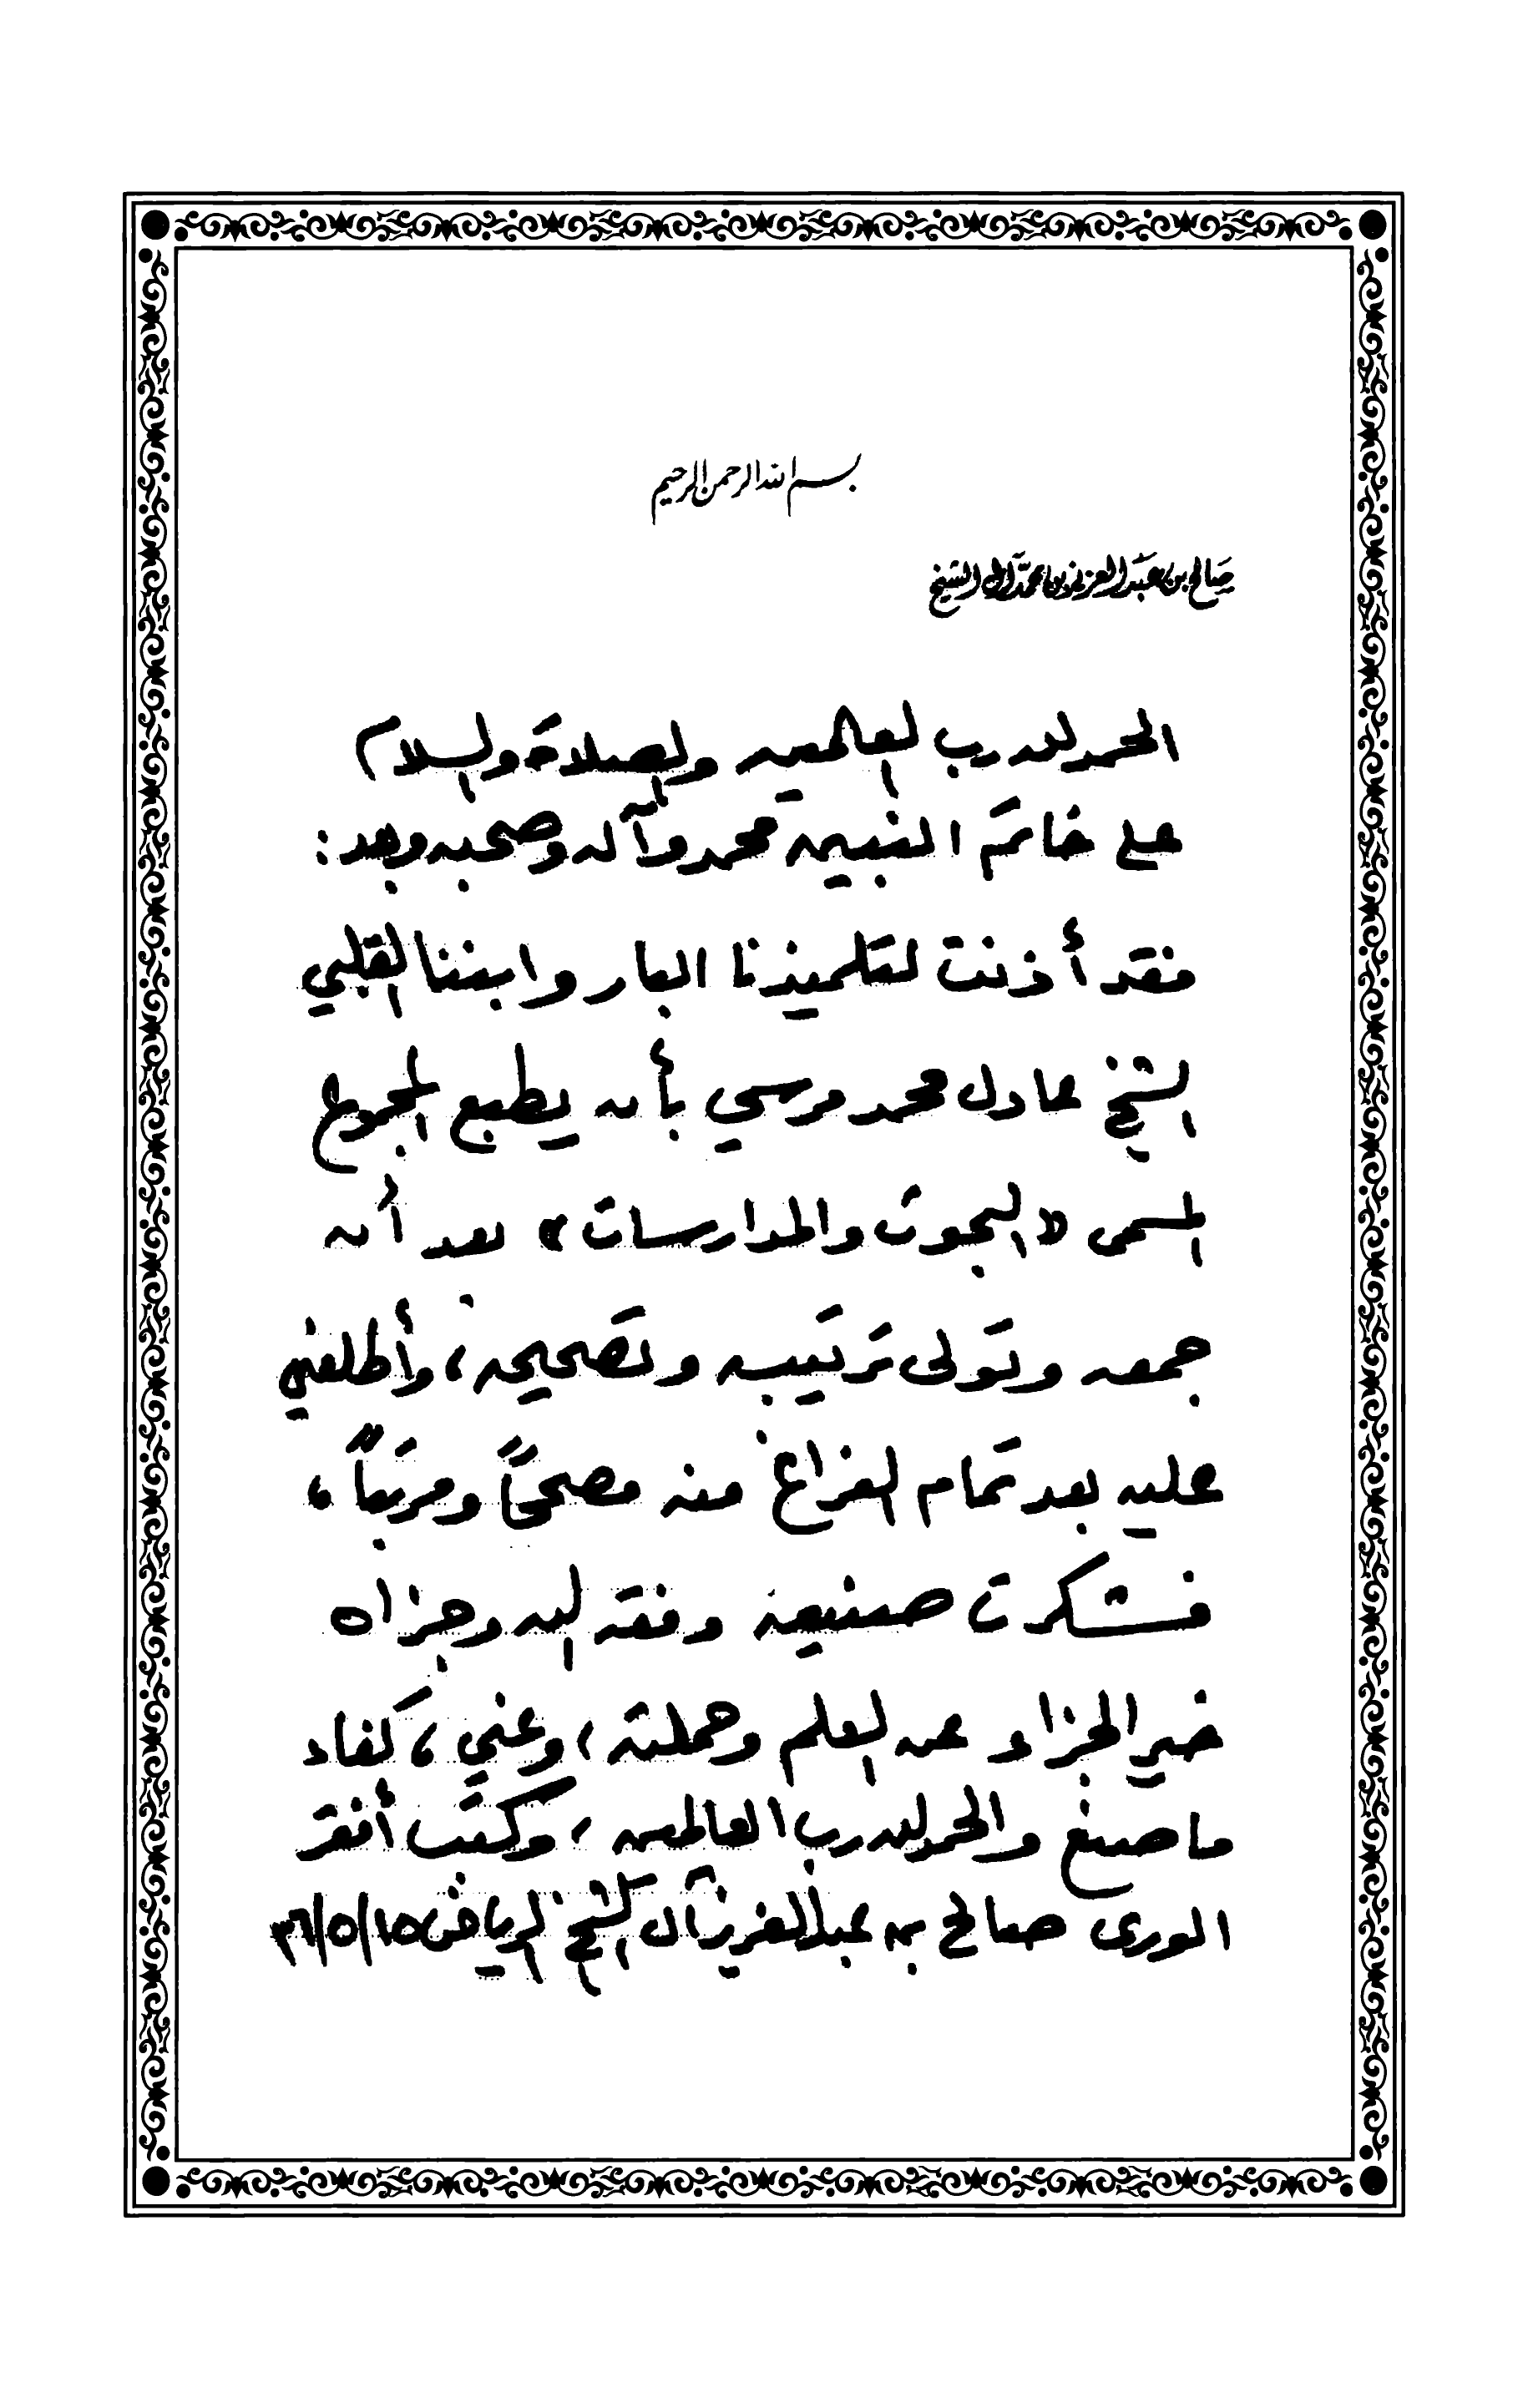 بسم الله الرحمن الرحيم
صالح بن عبد العزيز بن محمد آل الشيخ
الحمد لله رب العالمين والصلاة والسلام
على خاتم النبيين محمد وآله وصحبه وبعد:
فقد أذنت لتلميذنا البار وابننا القلبي
الشيخ عادل محمد مرسي بأن يطبع المجموع
المسمى «البحوث والمدارسات» بعد أن
جمعه وتولى ترتيبه وتصحيحه، وأطلعني
عليه بعد تمام الفراغ منه مصححاً ومرتباً،
فشكرت صنيعه وفقه الله وجزاه
خير الجزاء عن العلم وحملته، وعني، كفاء
ما صنع والحمد لله رب العالمين، وكتب أفقر
الورى صالح بن عبد العزيز آل الشيخ الرياض ١٥/٥/٣٦